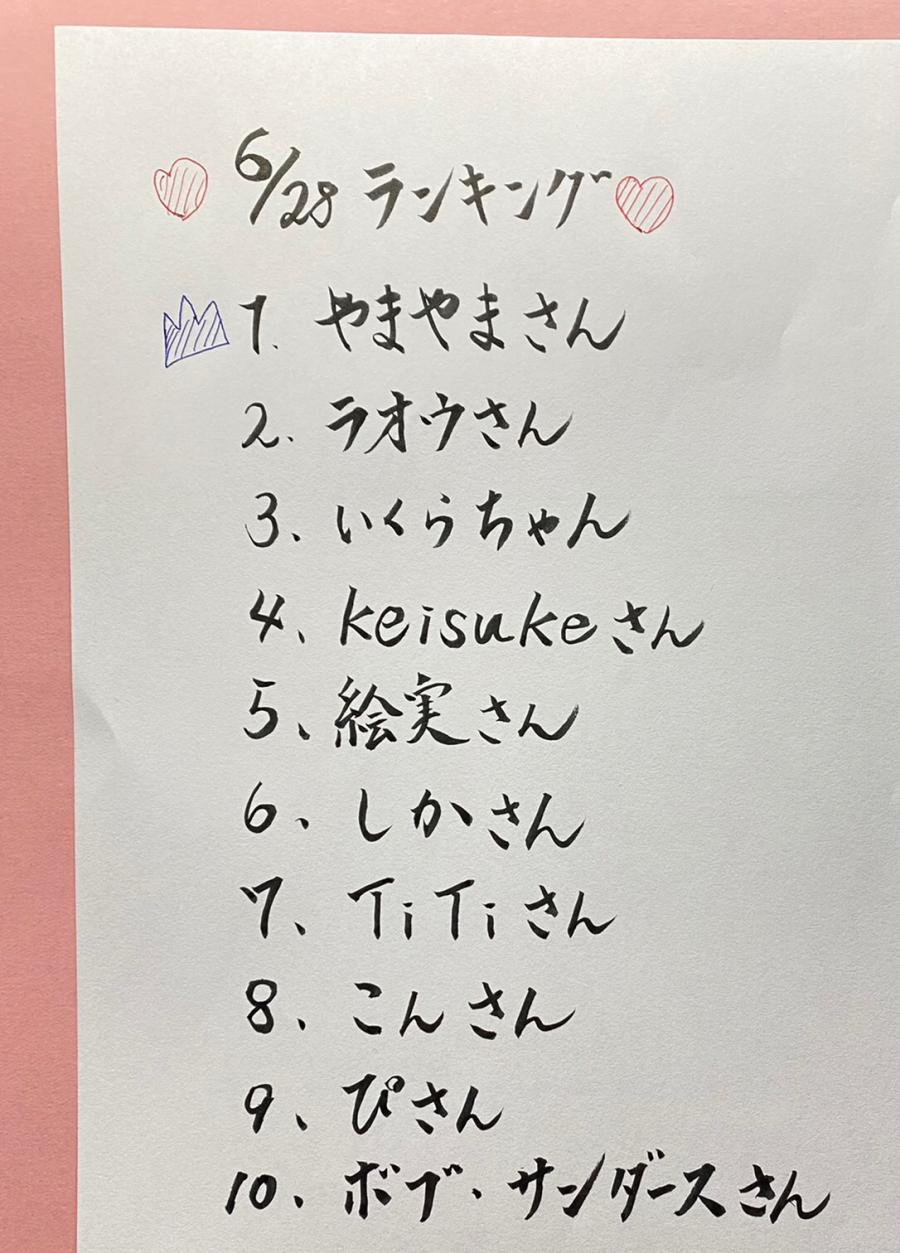 6/28 ランキング
1. やまやまさん
2. ラオウさん
3、いくらちゃん
4、keisukeさん
5、絵実さん
6、しかさん
7、TiTiさん
8、こんさん
9、ぴさん
10、ボブ・サンダースさん